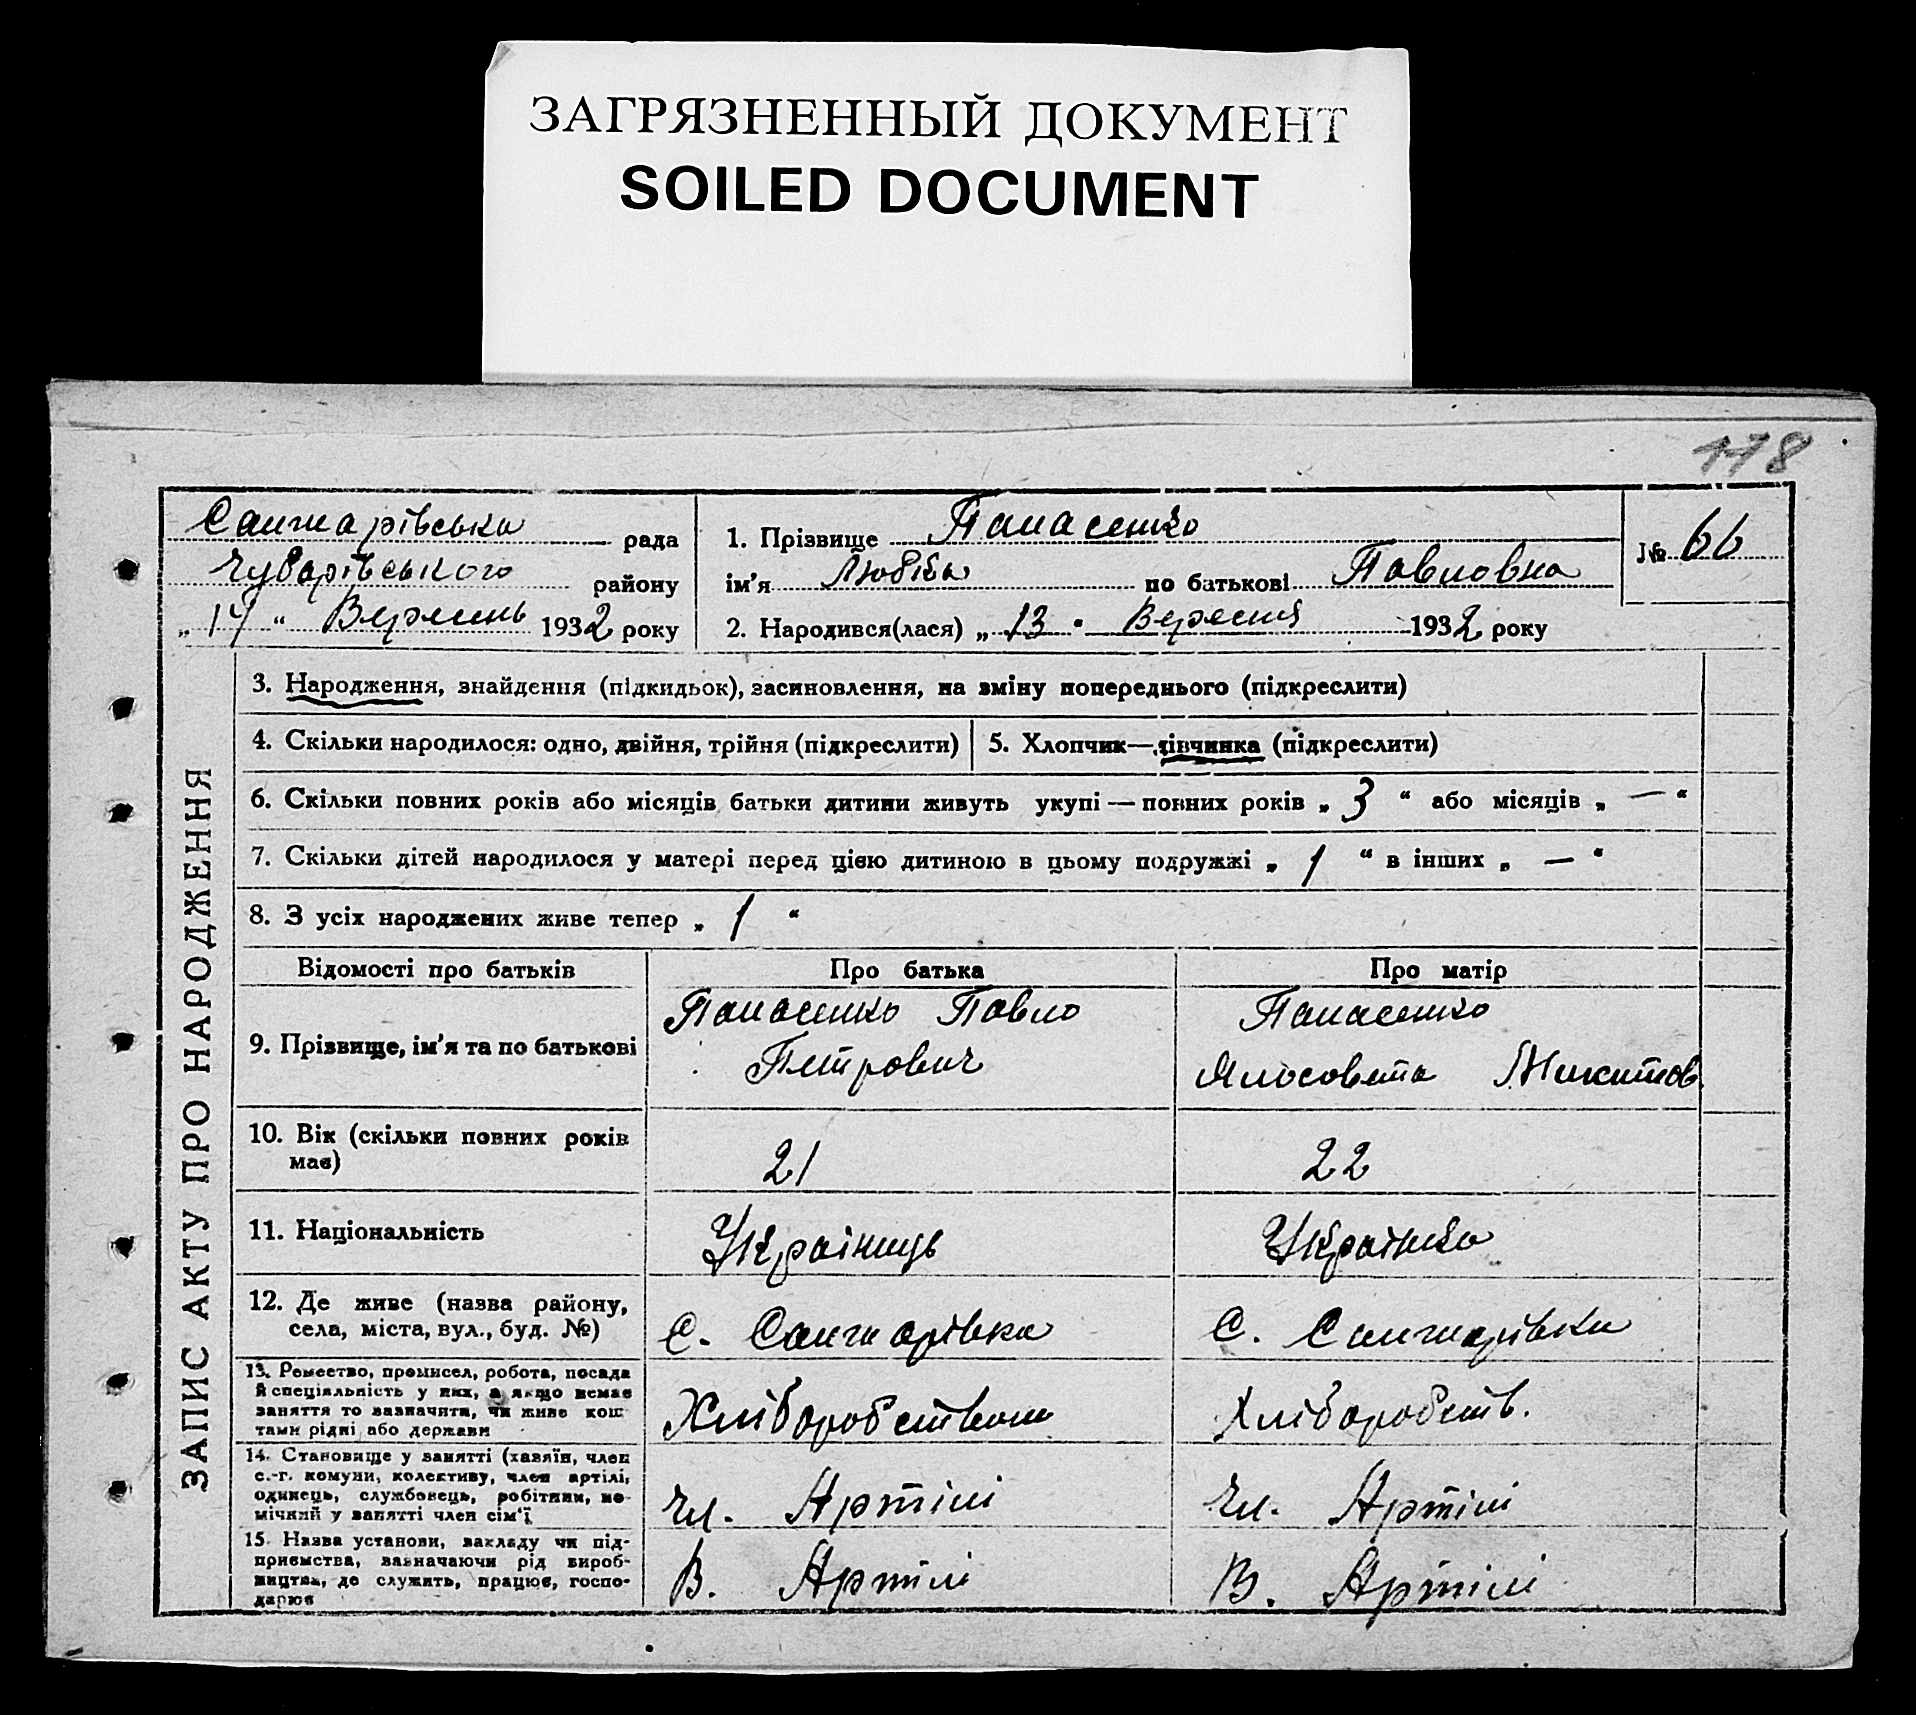 ЗАГРЯЗНЕННЫЙ ДОКУМЕНТ
SOILED DOCUMENT
178
Санжарівська рада
Чубарівського району
„ 14 “ Вересень 1932 року
1. Прізвище Панасенко
ім'я Любівь по батькові Павловна
№ 66
2. Народився(лася) „ 13 “ Вересня 1932 року
ЗАПИС АКТУ ПРО НАРОДЖЕННЯ
3. Народження, знайдення (підкидьок), засиновлення, на зміну попереднього (підкреслити)
4. Скільки народилося: одно, двійня, трійня (підкреслити)
5. Хлопчик—дівчинка (підкреслити)
6. Скільки повних років або місяців батьки дитини живуть укупі — повних років „ 3 “ або місяців „ — “
7. Скільки дітей народилося у матері перед цією дитиною в цьому подружжі „ 1 “ в інших „ — “
8. З усіх народжених живе тепер „ 1 “
Відомості про батьків
Про батька
Про матір
9. Прізвище, ім'я та по батькові
Панасенко Павло
Петрович
Панасенко
Ялосовета Микитов.
10. Вік (скільки повних років
має)
21
22
11. Національність
Українець
Українка
12. Де живе (назва району,
села, міста, вул., буд. №)
с. Санжарівка
с. Санжарівка
13. Ремество, промисел, робота, посада
й спеціяльність у них, а якщо немає
заняття то зазначити, чи живе кош
тами рідні або держави
Хліборобством
Хліборобств.
14. Становище у занятті (хазяїн, член
с.-г. комуни, колективу, член артілі,
одинець, службовець, робітник, по-
мічний у занятті член сім'ї
Чл. Артілі
Чл. Артілі
15. Назва установи, закладу чи під-
приємства, зазначаючи рід вироб-
ництва, де служить, працює, госпо-
дарює
В. Артілі
В. Артілі